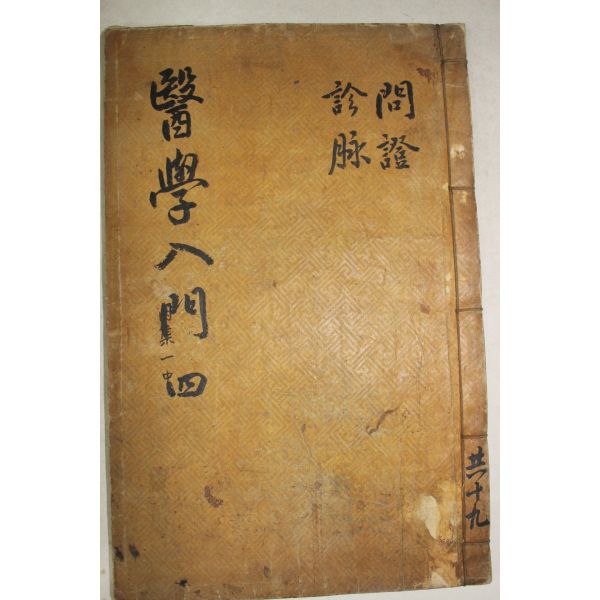 問證
診脉
醫學入門 四
集一中
共十九